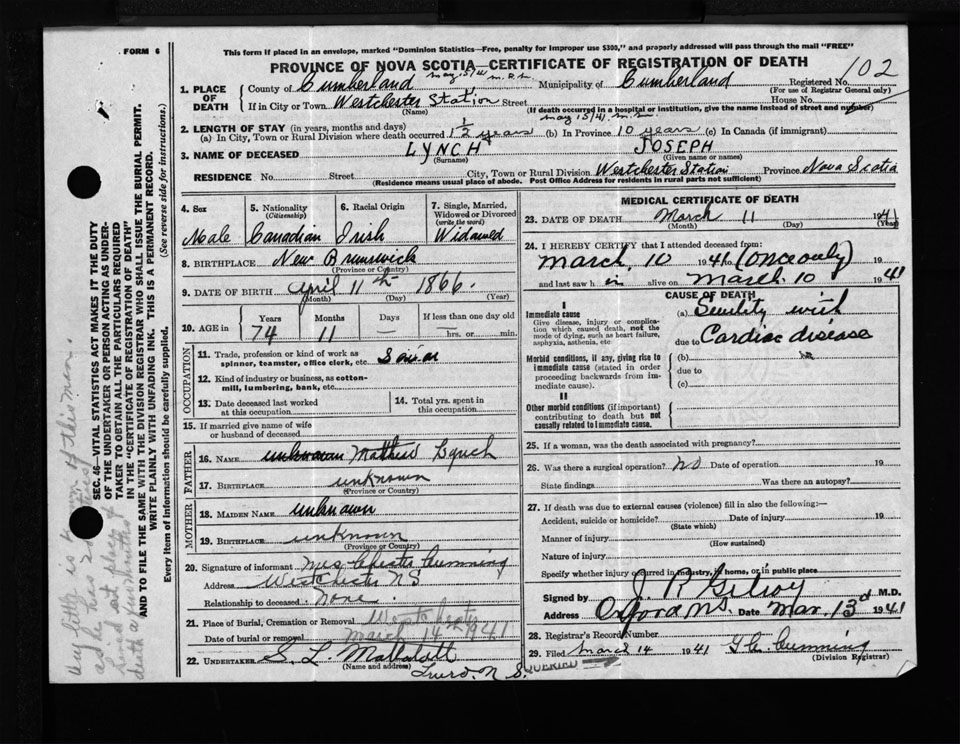 FORM 6
This form if placed in an envelope, marked "Dominion Statistics—Free, penalty for improper use $300," and properly addressed will pass through the mail "FREE"
PROVINCE OF NOVA SCOTIA—CERTIFICATE OF REGISTRATION OF DEATH
102
1. PLACE OF DEATH
County of Cumberland Municipality of Cumberland Registered No.
(For use of Registrar General only)
If in City or Town Westchester Station Street House No.
(Name) (If death occurred in a hospital or institution, give the name instead of street and number)
may 15/41
2. LENGTH OF STAY (in years, months and days)
(a) In City, Town or Rural Division where death occurred 1 1/2 years (b) In Province 10 years (c) In Canada (if immigrant)
3. NAME OF DECEASED LYNCH JOSEPH
(Surname) (Given name or names)
RESIDENCE No. Street City, Town or Rural Division Westchester Station Province Nova Scotia
(Residence means usual place of abode. Post Office Address for residents in rural parts not sufficient)
4. Sex 5. Nationality (Citizenship) 6. Racial Origin 7. Single, Married, Widowed or Divorced (write the word)
Male Canadian Irish Widowed
8. BIRTHPLACE New Brunswick
(Province or Country)
9. DATE OF BIRTH April 11th 1866.
(Month) (Day) (Year)
10. AGE in Years Months Days If less than one day old
74 11 — hrs. or min.
OCCUPATION
11. Trade, profession or kind of work as spinner, teamster, office clerk, etc.
12. Kind of industry or business, as cotton-mill, lumbering, bank, etc.
13. Date deceased last worked at this occupation
14. Total yrs. spent in this occupation
15. If married give name of wife or husband of deceased
FATHER
16. NAME unknown Mathew Lynch
17. BIRTHPLACE unknown
(Province or Country)
MOTHER
18. MAIDEN NAME unknown
19. BIRTHPLACE unknown
(Province or Country)
20. Signature of informant Mrs Chester Cumming
Address Westchester NS
Relationship to deceased None.
21. Place of Burial, Cremation or Removal
Date of burial or removal March 14 1941
22. UNDERTAKER S L
(Name and address)
N. S.
MEDICAL CERTIFICATE OF DEATH
23. DATE OF DEATH March 11 1941
(Month) (Day) (Year)
24. I HEREBY CERTIFY that I attended deceased from:
March, 10 1941 (once only)
and last saw h alive on March 10 1941
CAUSE OF DEATH
I
Immediate cause
Give disease, injury or complication which caused death, not the mode of dying, such as heart failure, asphyxia, asthenia, etc
(a) Senility with
due to Cardiac disease
Morbid conditions, if any, giving rise to immediate cause (stated in order proceeding backwards from immediate cause).
(b)
due to
(c)
II
Other morbid conditions (if important) contributing to death but not causally related to immediate cause.
25. If a woman, was the death associated with pregnancy?
26. Was there a surgical operation? no Date of operation 19
State findings Was there an autopsy?
27. If death was due to external causes (violence) fill in also the following:—
Accident, suicide or homicide? Date of injury 19
(State which)
Manner of injury
(How sustained)
Nature of injury
Specify whether injury occurred in industry, in home, or in public place
Signed by J. R Gilroy M.D.
Address Oxford N.S. Date Mar. 13th 1941
28. Registrar's Record Number
29. Filed March 14 1941 Cumming
(Division Registrar)
QUERIED
SEC. 46—VITAL STATISTICS ACT MAKES IT THE DUTY
OF THE UNDERTAKER OR PERSON ACTING AS UNDER-
TAKER TO OBTAIN ALL THE PARTICULARS REQUIRED
IN THE "CERTIFICATE OF REGISTRATION OF DEATH"
AND TO FILE THE SAME WITH THE DIVISION REGISTRAR WHO SHALL ISSUE THE BURIAL PERMIT.
WRITE PLAINLY WITH UNFADING INK. THIS IS A PERMANENT RECORD.
Every item of information should be carefully supplied. (See reverse side for instructions.)
Very little is of this man